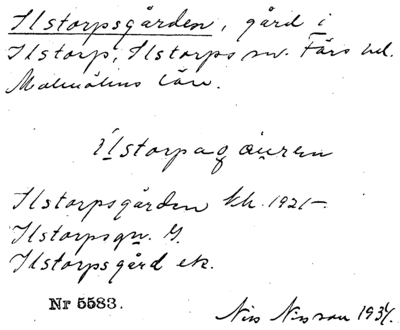 Ilstorpsgården, gård i
Ilstorp, Ilstorps sn. Färs hd.
Malmöhus län.
Ilstorpagåuren
Ilstorpsgården kh. 1921-
Ilstorpsgn. G.
Ilstorpsgård ek.
Nr 5583.
Nils Nilsson 1934.